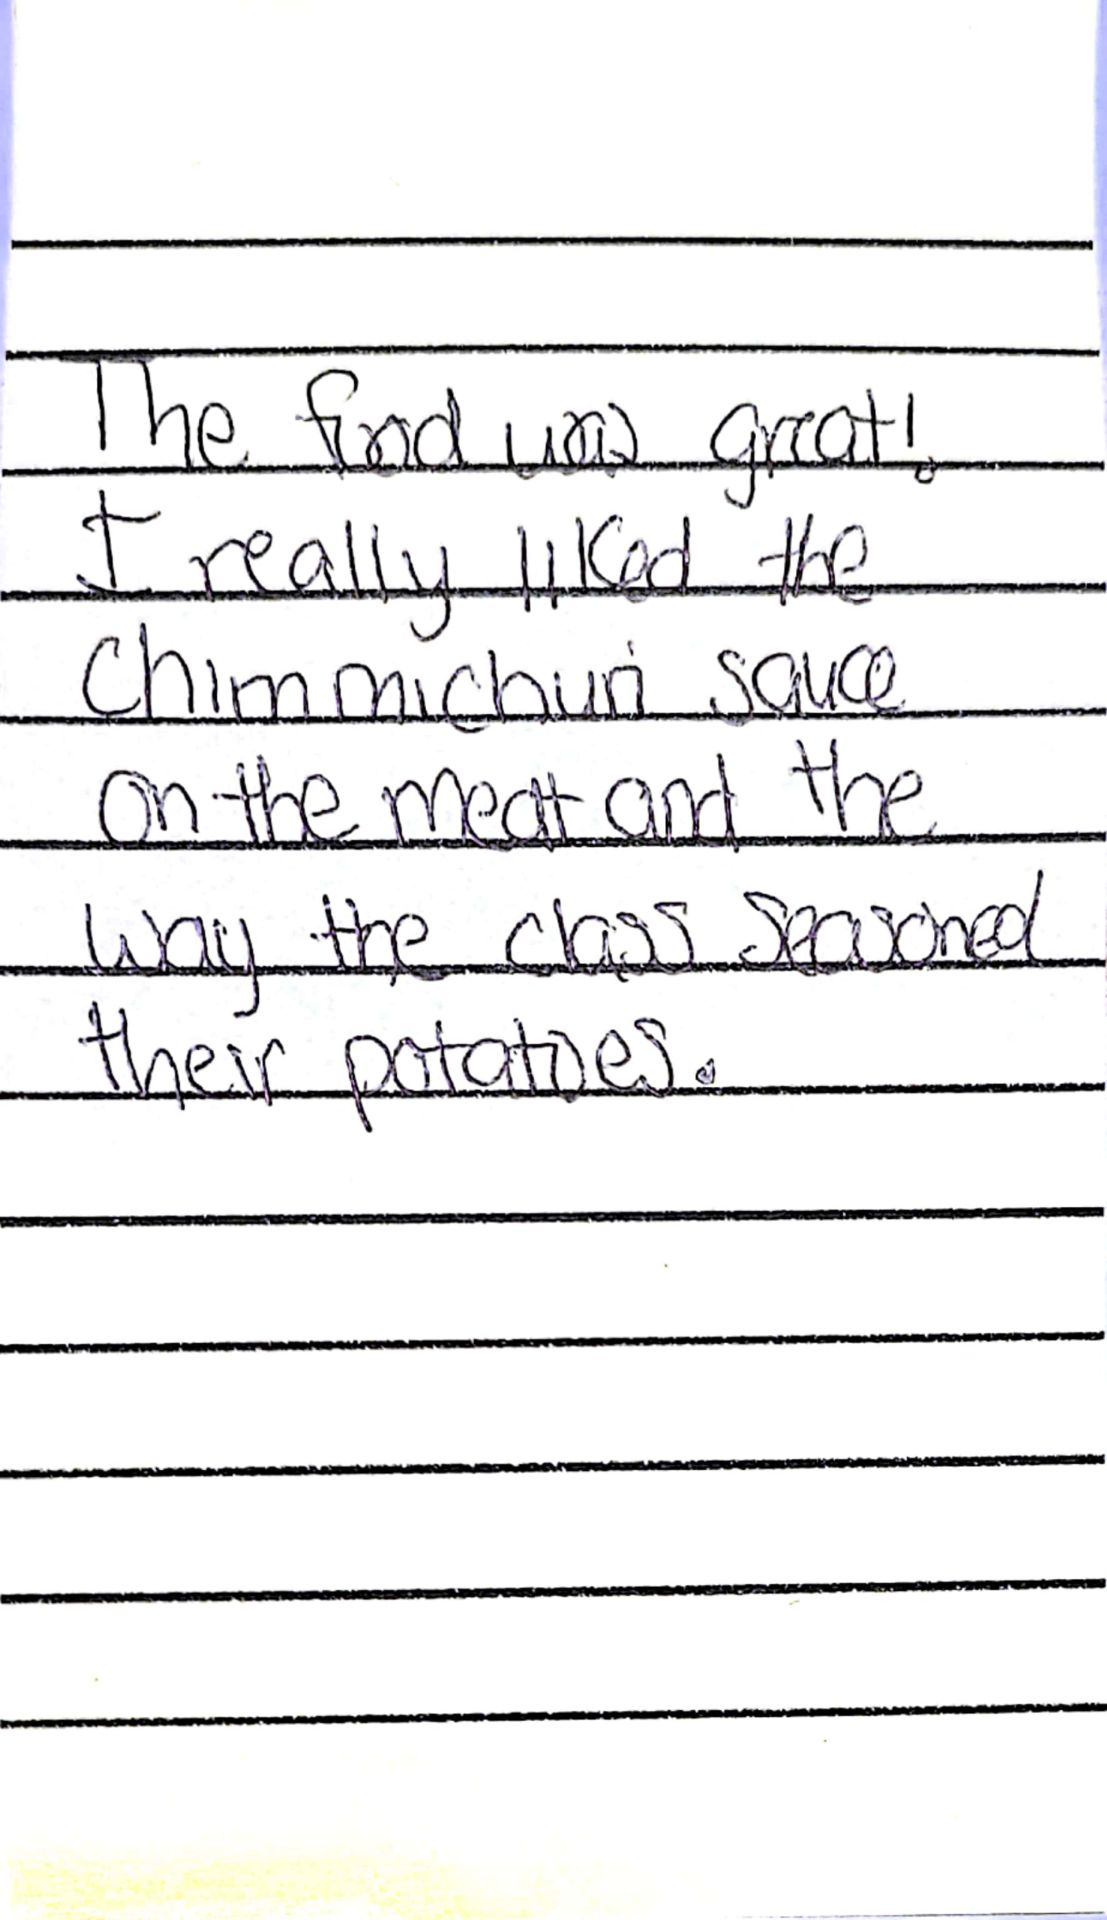 The food was great!
I really liked the
Chimmichuri sauce
on the meat and the
way the class seasoned
their potatoes.